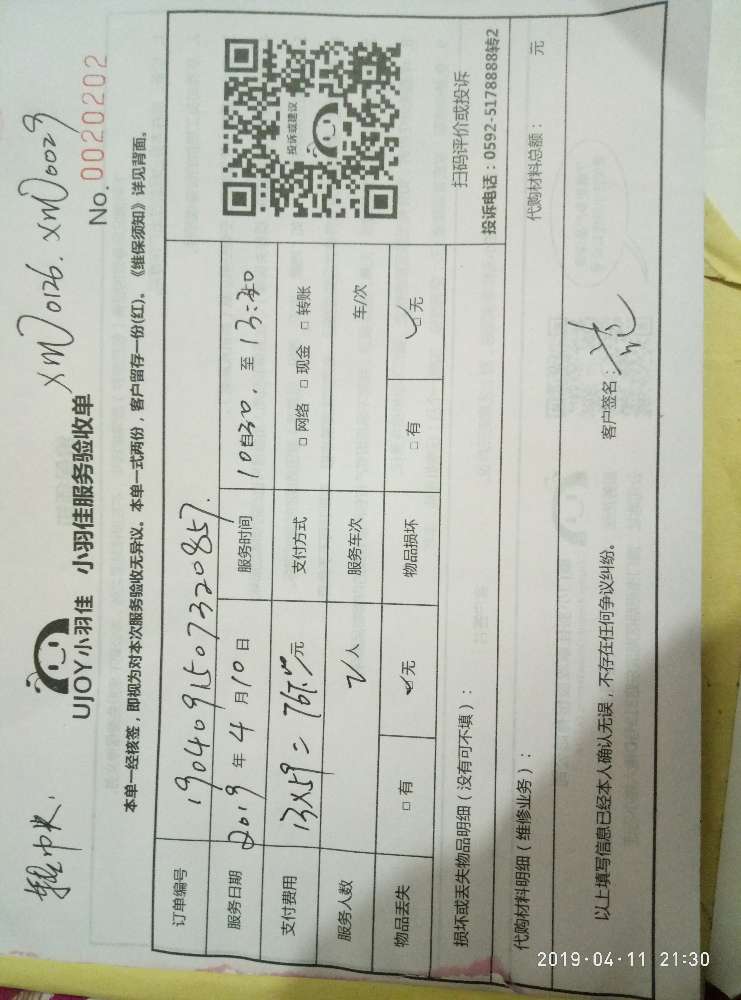 XM0126. XM0029
UJOY小羽佳 小羽佳服务验收单
No. 0020202
本单一经核签，即视为对本次服务验收无异议。本单一式两份，客户留存一份(红)。《维保须知》详见背面。
订单编号 1904091507320857.
服务日期 2019 年 4 月 10 日 服务时间 至
支付费用 元 支付方式 □ 网络 □ 现金 □ 转账
服务人数 2 人 服务车次 车/次
物品丢失 □ 有 ☑ 无 物品损坏 □ 有 ☑ 无
投诉或建议
扫码评价或投诉
投诉电话：0592-5178888转2
损坏或丢失物品明细（没有可不填）：
代购材料明细（维修业务）： 代购材料总额： 元
以上填写信息已经本人确认无误，不存在任何争议纠纷。 客户签名：
2019·04·11 21:30